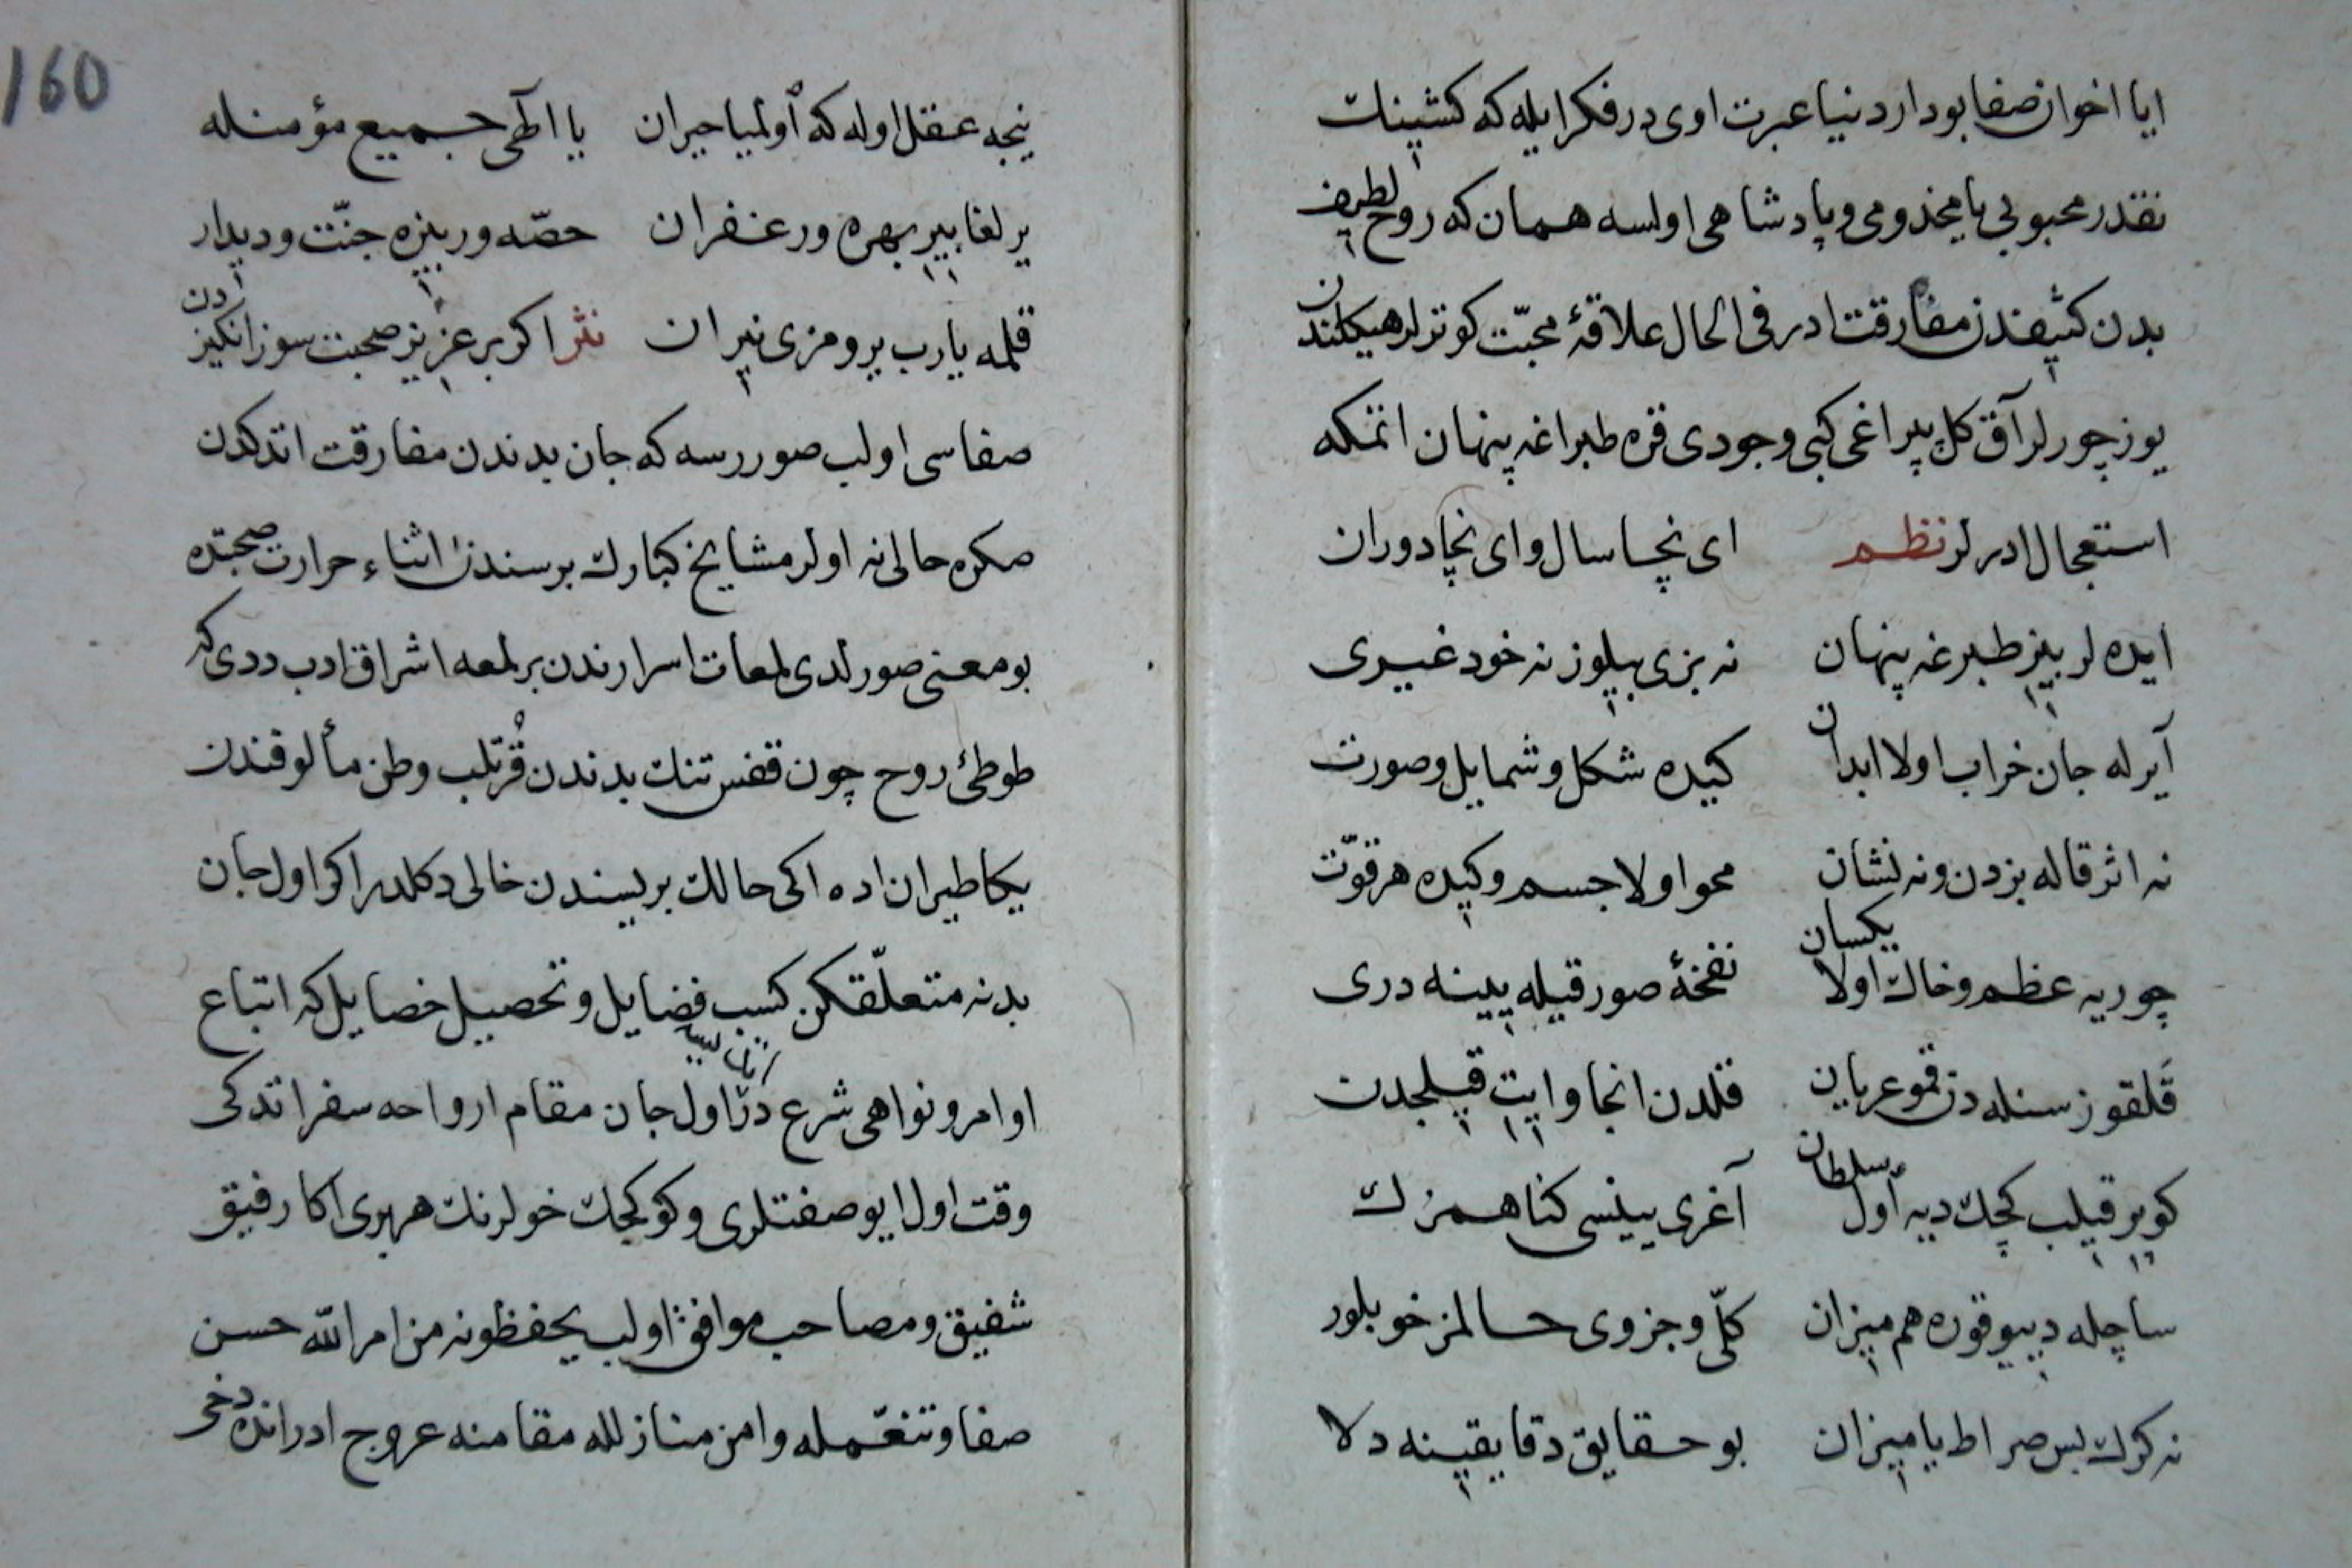 ایا اخوان صفا بو دار دنیا عبرت اوی در فکر ایله که کشینك
نقدر محبوبی یا مخدومی و پادشاهی اولسه همان که روح لطیف
بدن کثیفدن مفارقت ادر فی الحال علاقهٔ محبّت کوترلر هیکلندن
یوز چورلر آق کل پیراغی کبی وجودی قره طپراغه پنهان اتمکه
استعجال ادرلر نظم ای نچا سال و ای نچا دوران
ایده لر بیز طپرغه پنهان نه بزی بیلوز نه خود غیری
آیرله جان خراب اولا ابدان کیده شکل و شمایل و صورت
نه اثر قاله بزدن و نه نشان محو اولا جسم و کیده هر قوّت
چوریه عظم و خاك اولا یکسان نفخهٔ صور قیله یینه دری
قلقوز سنله دن قمو عریان قلدن انجا وایت قیلجدن
کوپر قیلب کچك دیه اول سلطان آغری یینسی کناهمزك
ساچله دیبو قوره هم میزان کلّی و جزوی حالمز خو بلور
نه کرك بس صراط یا میزان بو حقایق دقایقینه دلا
160
نیجه عقل اوله که اولمیا حیران یا الهی جمیع مؤمنله
یرلغا بیر بهره ور غفران حصّه ور بیزه جنّت و دیدار
قلمه یارب یرومزی نیران نثر اکر بر عزیز صحبت سوزانکیزدن
صفاسی اولب صوررسه که جان بدندن مفارقت اتدکدن
صکره حالی نه اولر مشایخ کبارك برسندن اثناء حرارت صحبتده
بو معنی صورلدی لمعات اسرارندن بر لمعه اشراق ادب ددی که
طوطئ روح چون قفس تنك بدندن قرتلب وطن مألوفندن
یکا طیران اده اکی حالك بریسندن خالی دکلدر اکر اول جان
بدنه متعلّقکن کسب فضایل و تحصیل خصایل که اتباع
اوامر و نواهی شرع در اول جان مقام ارواحه سفر اتدکی
وقت اول ایو صفتلری و کوکجك خولرنك هر بری اکا رفیق
شفیق و مصاحب موافق اولب یحفظونه من امر الله حسن
صفا و تنعّمله و امن منازلله مقامنه عروج ادر انده دخی